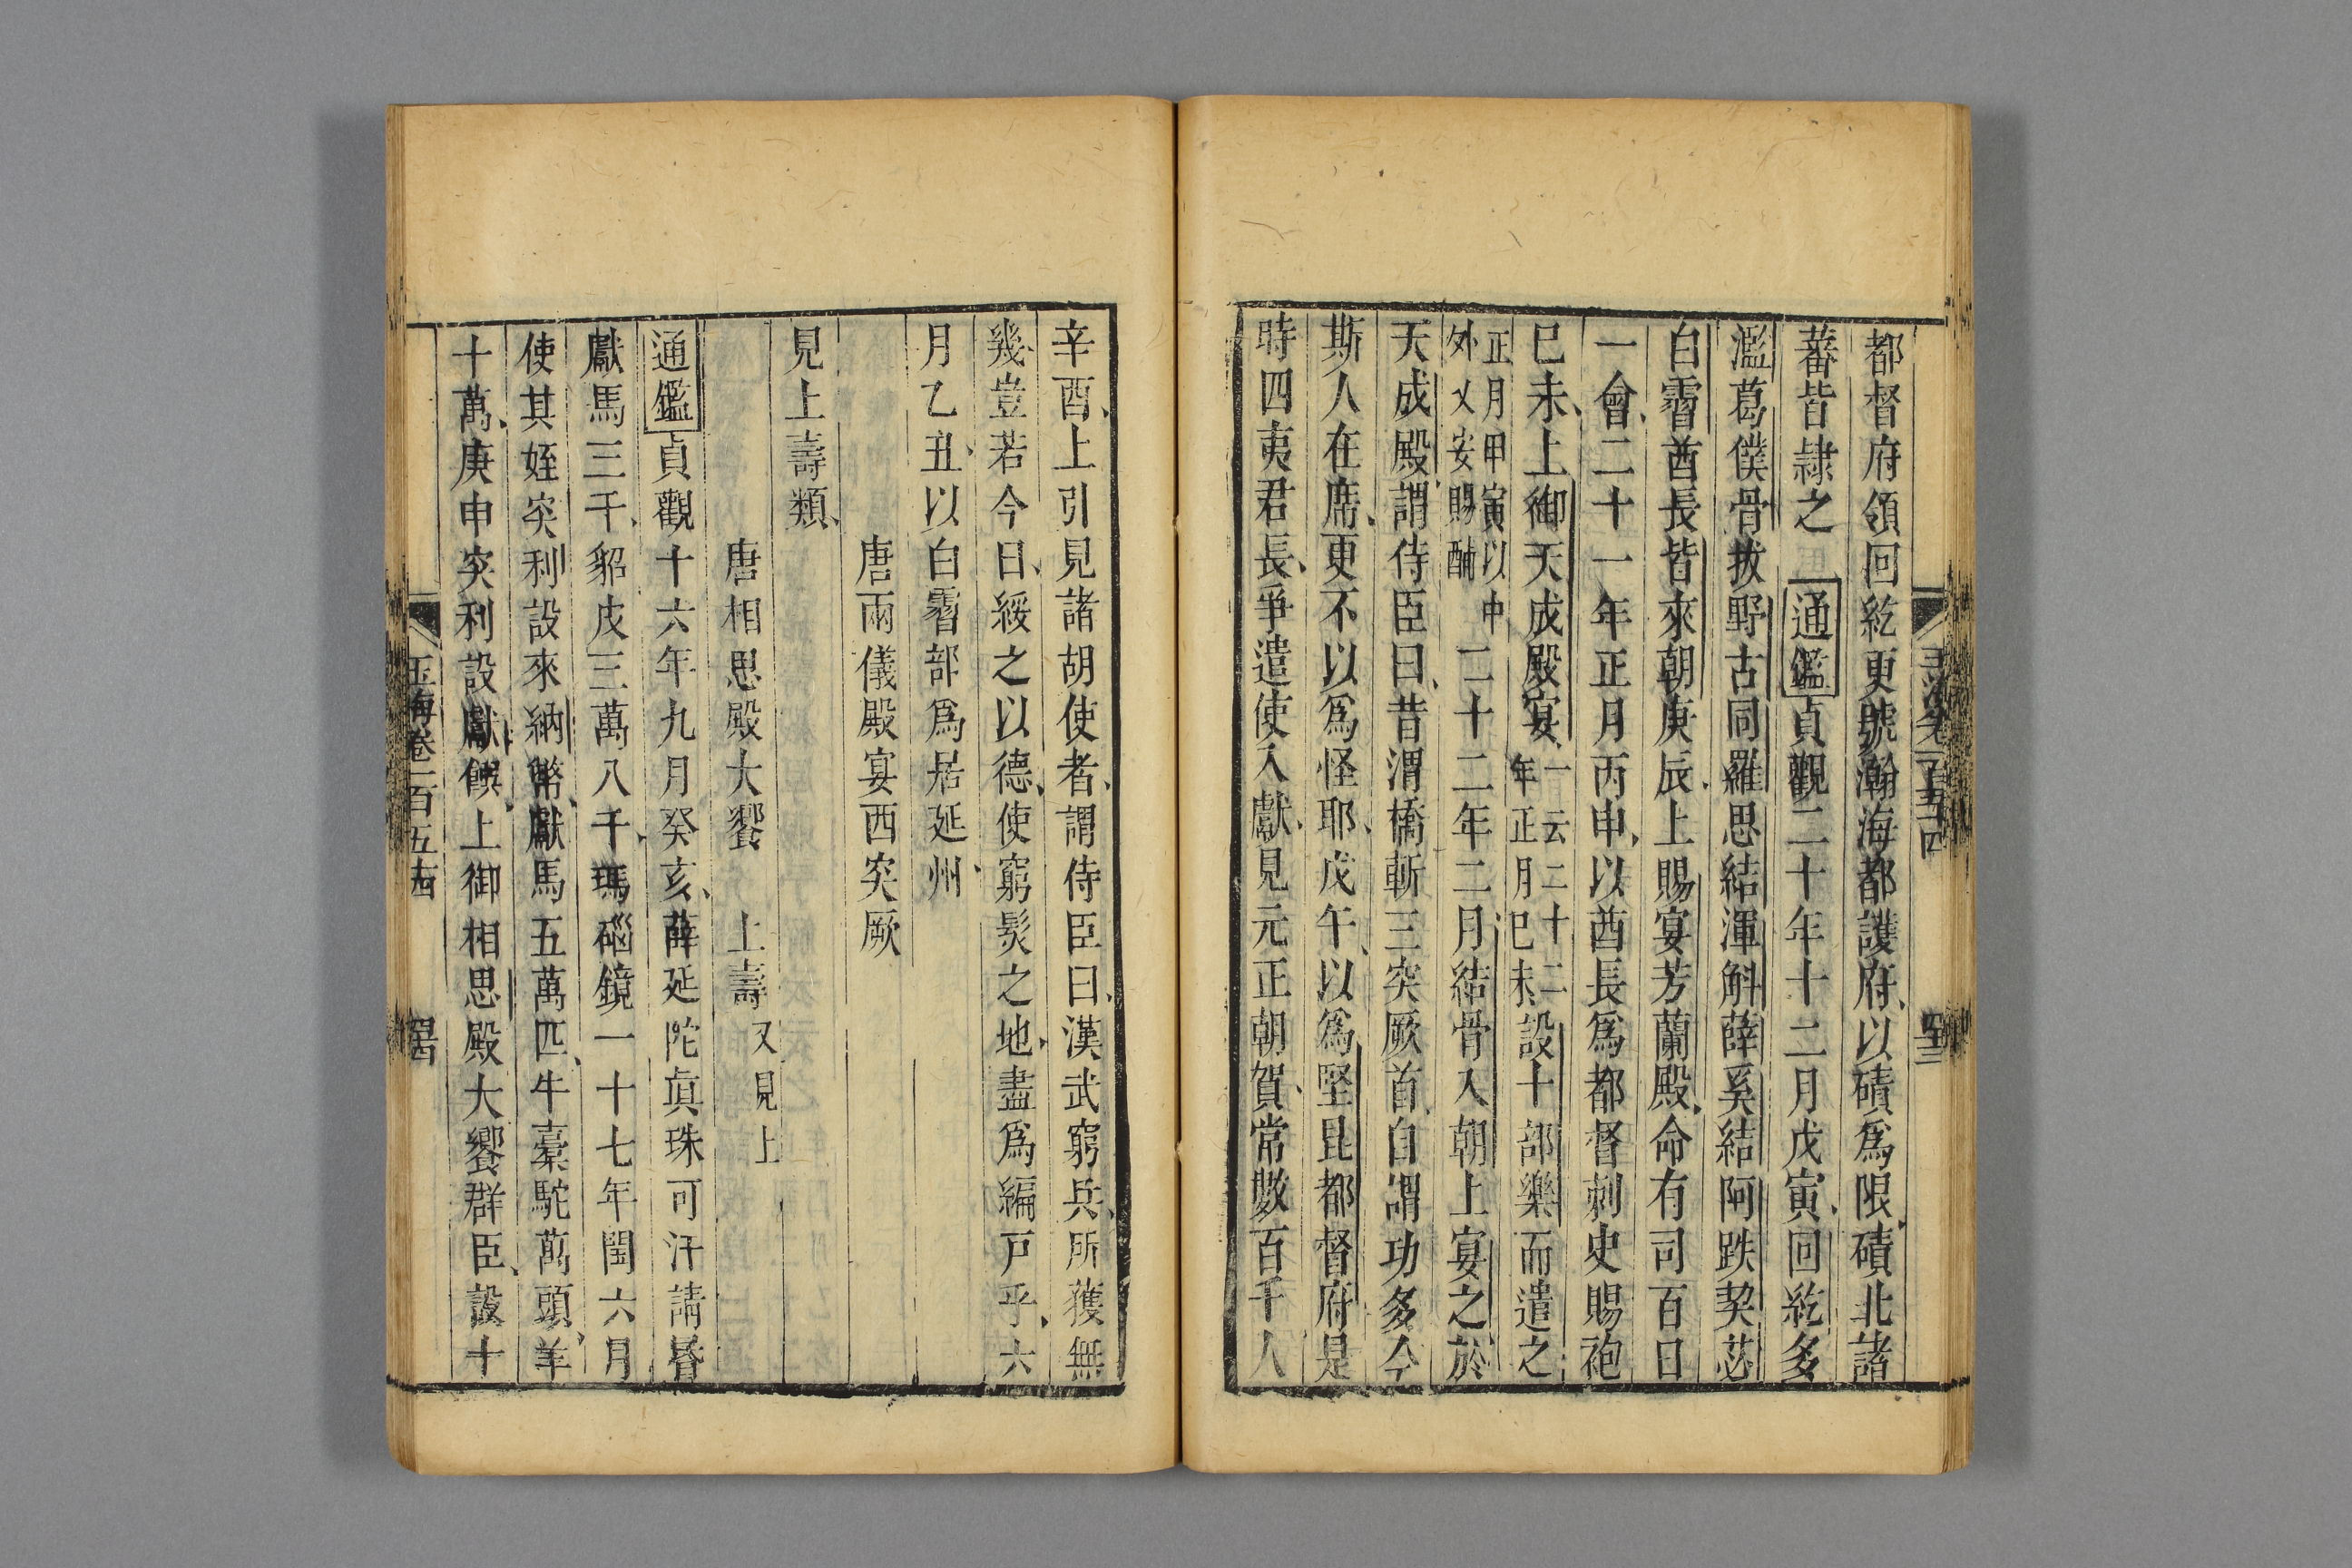 都督府領回紇更號瀚海都護府以磧為限磧北諸
蕃皆隷之 通鑑貞觀二十年十二月戊寅回紇多
濫葛僕骨拔野古同羅思結渾斛薛奚結阿跌契苾
白霫酋長皆來朝庚辰上賜宴芳蘭殿命有司百日
一會二十一年正月丙申以酋長爲都督刺史賜袍
巳未上御天成殿宴一云二十二年正月巳未設十部樂而遣之
正月甲寅以中外乂安賜酺二十二年二月結骨入朝上宴之於
天成殿謂侍臣曰昔渭橋斬三突厥首自謂功多今
斯人在席更不以爲怪耶戊午以爲堅昆都督府是
時四夷君長爭遣使入獻見元正朝賀常數百千人
辛酉上引見諸胡使者謂侍臣曰漢武窮兵所獲無
幾豈若今日綏之以德使窮髮之地盡爲編戸乎六
月乙丑以白霫部爲居延州
唐兩儀殿宴西突厥
見上壽類
唐相思殿大饗 上壽 又見上
通鑑貞觀十六年九月癸亥薛延陀眞珠可汗請昏
獻馬三千貂皮三萬八千瑪碯鏡一十七年閏六月
使其姪突利設來納幣獻馬五萬匹牛槖駝萬頭羊
十萬庚申突利設獻饌上御相思殿大饗群臣設十
玉海卷一百五十四